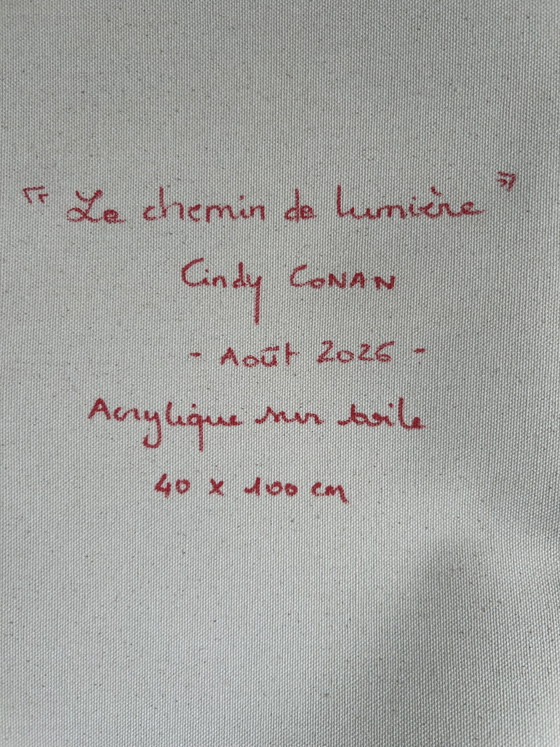 "Le chemin de lumière"
Cindy CONAN
- Août 2026 -
Acrylique sur toile
40 x 100 cm